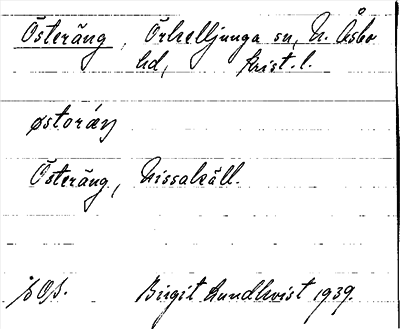 Österäng, Örkelljunga sn, N. Åsbo
hd, Krist. l.
østoräŋ
Österäng, Nissakäll.
Birgit Lundkvist 1939.